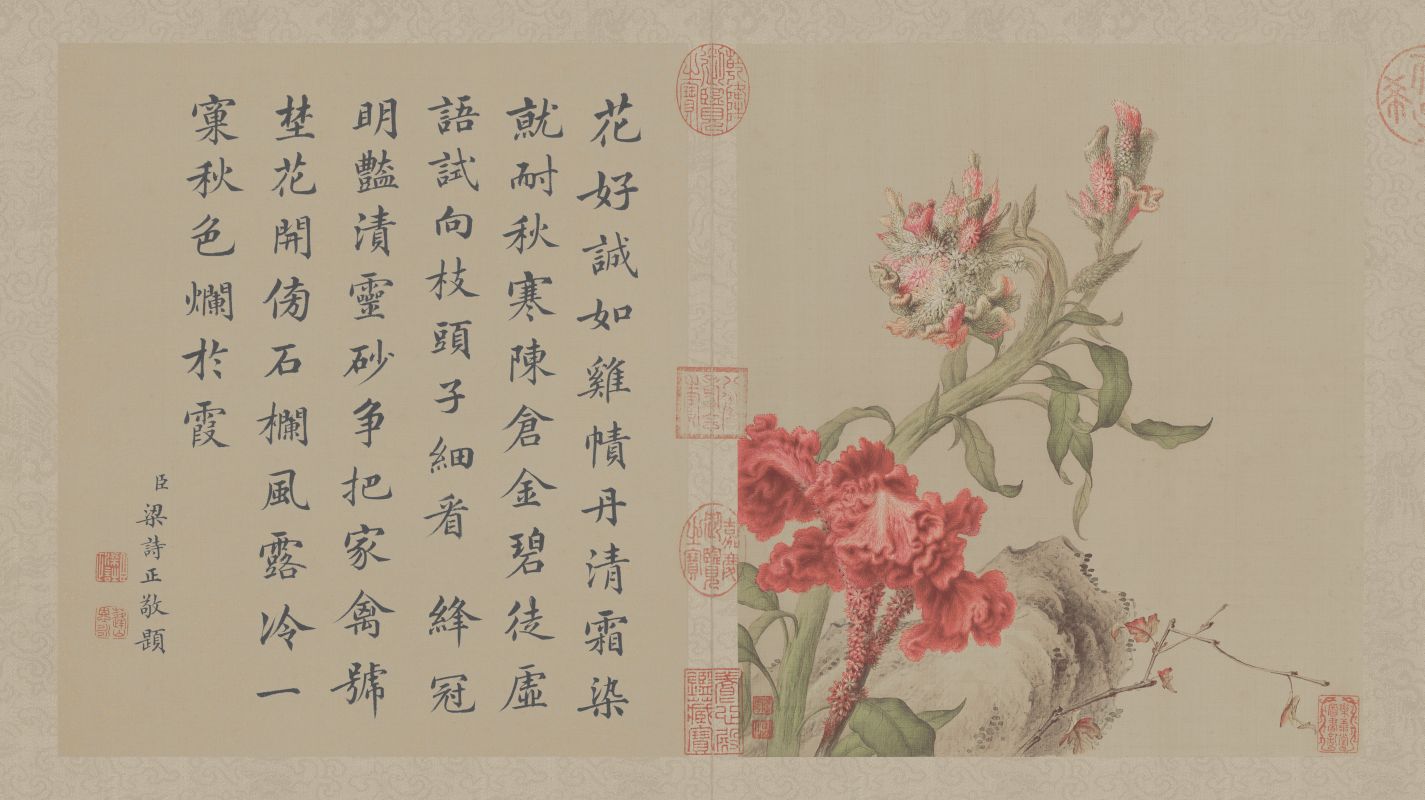 花好誠如雞幘丹清霜染
就耐秋寒陳倉金碧徒虛
語試向枝頭子細看 絳冠
明豔漬靈砂爭把家禽號
埜花開傍石欄風露冷一
窠秋色爛於霞
臣梁詩正敬題
嘉慶御覽之寶
乾隆御覽之寶